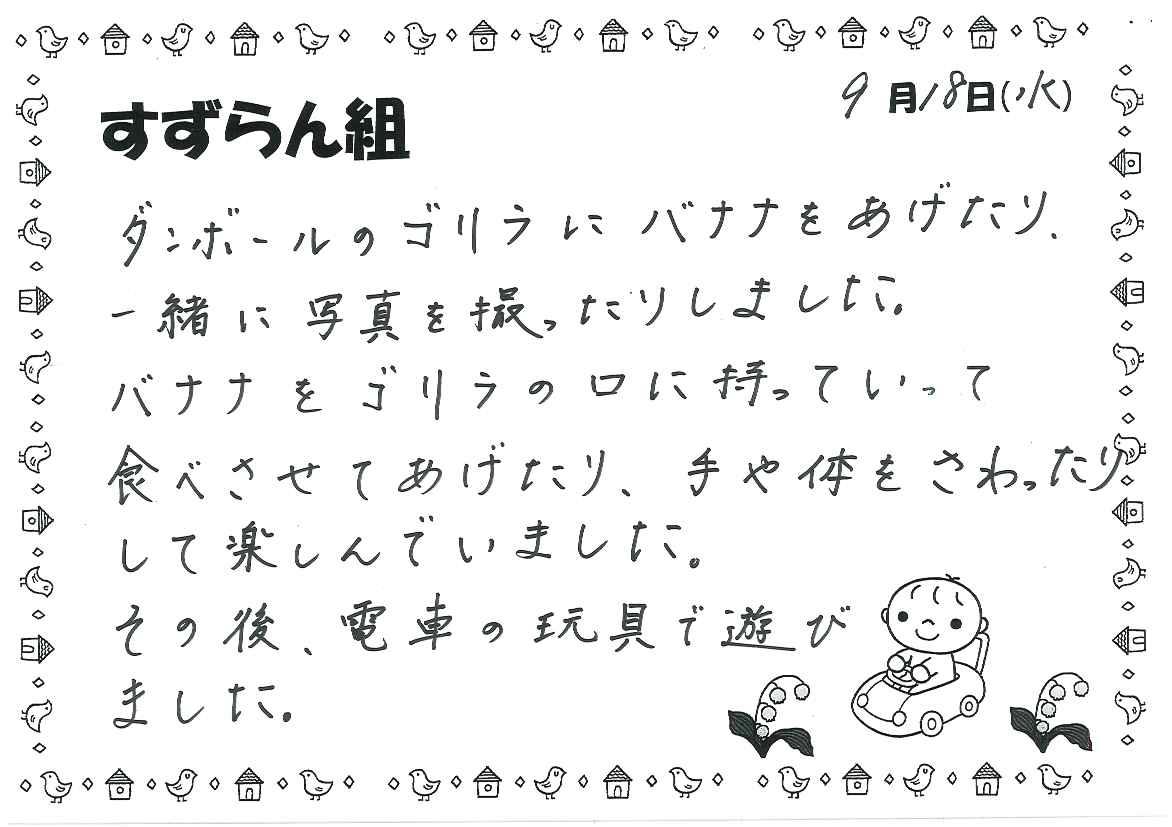 9月18日(水)
すずらん組
ダンボールのゴリラにバナナをあげたり、
一緒に写真を撮ったりしました。
バナナをゴリラの口に持っていって
食べさせてあげたり、手や体をさわったり
して楽しんでいました。
その後、電車の玩具で遊び
ました。